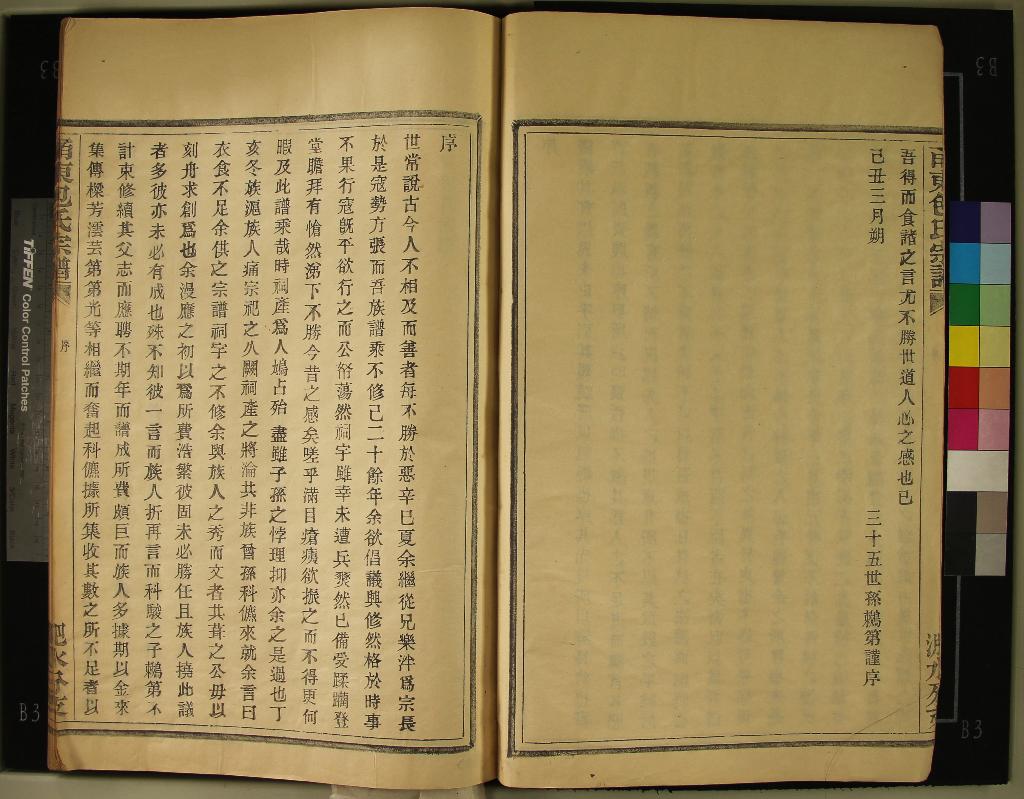 吾得而食諸之言尤不勝世道人心之感也已
己丑三月朔　三十五世孫鵜第謹序
序
世常說古今人不相及而善者每不勝於惡辛巳夏余繼從兄樂泮爲宗長
於是寇勢方張而吾族譜乘不修已二十餘年余欲倡議興修然格於時事
不果行寇旣平欲行之而公帑蕩然祠宇雖幸未遭兵燹然已備受蹂躪登
堂瞻拜有愴然涕下不勝今昔之感矣嗟乎滿目瘡痍欲振之而不得更何
暇及此譜乘哉時祠產爲人鳩占殆盡雖子孫之悖理抑亦余之是過也丁
亥冬族滬族人痛宗祀之久闕祠產之將淪共非族曾孫科儦來就余言曰
衣食不足余供之宗譜祠宇之不修余與族人之秀而文者共葺之公毋以
刻舟求創爲也余漫應之初以爲所費浩繁彼固未必勝任且族人撓此議
者多彼亦未必有成也殊不知彼一言而族人折再言而科駿之子鵜第不
計束修續其父志而應聘不期年而譜成所費頗巨而族人多據期以金來
集傳樑芳澐芸第第光等相繼而奮起科儦據所集收其數之所不足者以
序
TIFFEN Color Control Patches
B3
B3